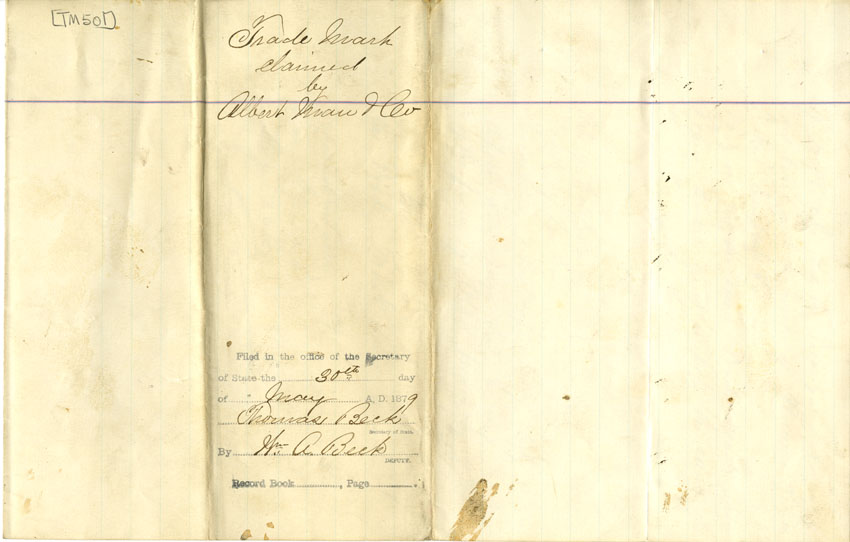 [TM501]
Trade Mark
claimed
by
Albert Mau & Co
Filed in the office of the Secretary
of State the 30th day
of May A.D. 1879
Thomas Beck
Secretary of State.
By Wm. A. Beck
DEPUTY.
Record Book , Page .